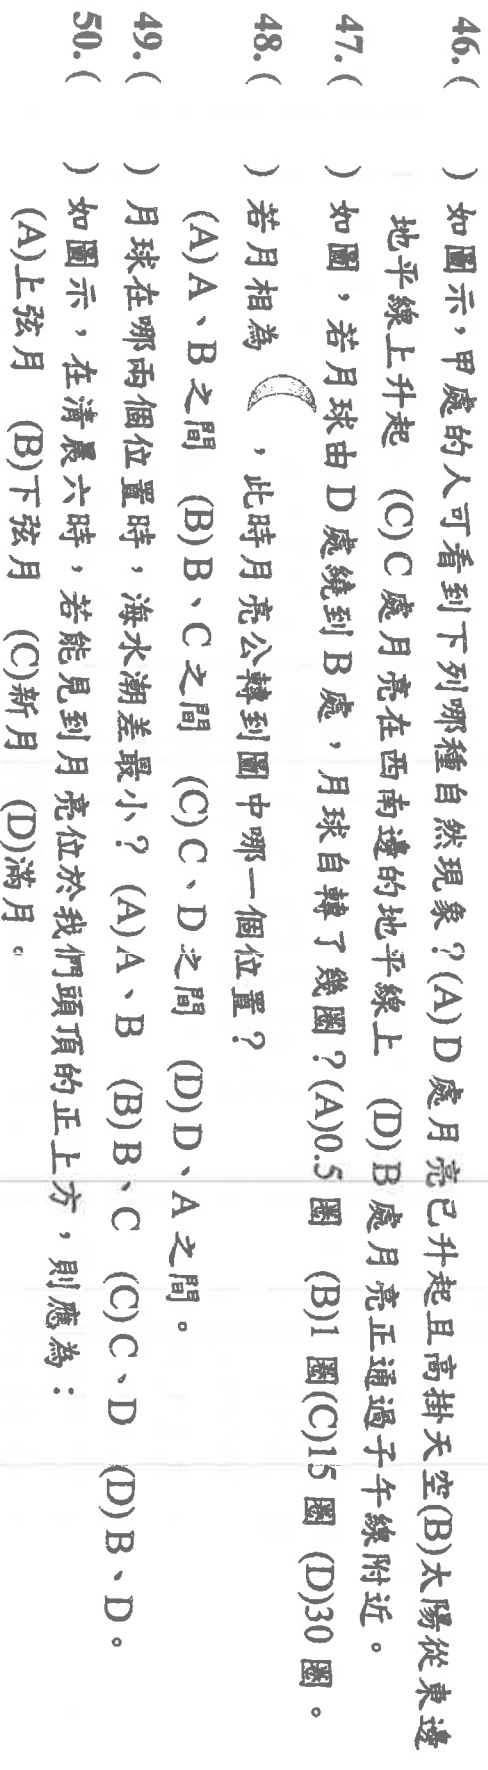 46.(　　)如圖示，甲處的人可看到下列哪種自然現象？(A)D 處月亮已升起且高掛天空(B)太陽從東邊
地平線上升起　(C)C 處月亮在西南邊的地平線上　(D)B 處月亮正通過子午線附近。
47.(　　)如圖，若月球由 D 處繞到 B 處，月球自轉了幾圈？(A)0.5 圈　(B)1 圈(C)15 圈　(D)30 圈。
48.(　　)若月相為　　，此時月亮公轉到圖中哪一個位置？
(A)A、B 之間　(B)B、C 之間　(C)C、D 之間　(D)D、A 之間。
49.(　　)月球在哪兩個位置時，海水潮差最小？(A)A、B　(B)B、C　(C)C、D　(D)B、D。
50.(　　)如圖示，在清晨六時，若能見到月亮位於我們頭頂的正上方，則應為：
(A)上弦月　(B)下弦月　(C)新月　(D)滿月。